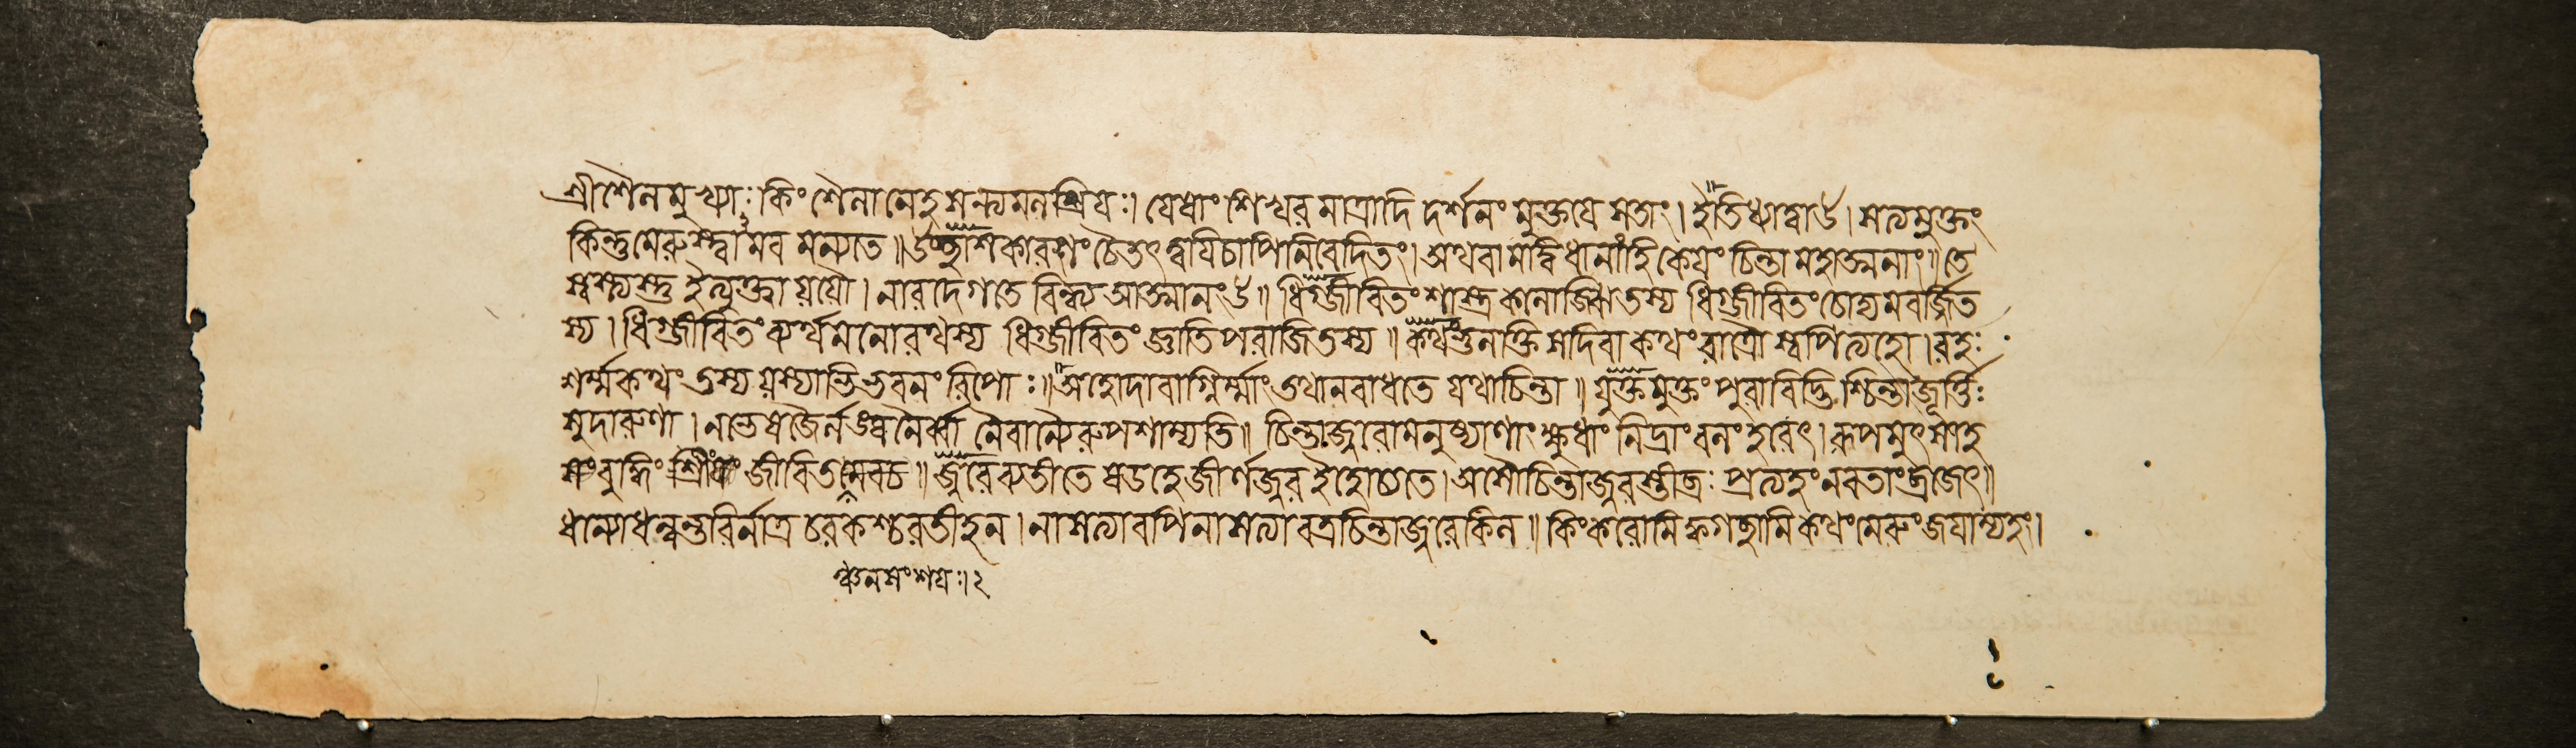 শ্রীশৈলমুখ্যাঃ কিং শৈলানেহ সন্ত্যমলশ্রিয়ঃ। যেষাং শিখরমাত্রাদি দর্শনং মুক্তয়ে সতাং। ইতিধ্যাত্বাঽ। সত্যমুক্তং
কিন্তুমেরুস্ত্বামব মন্যতে॥ নিশ্বাসকারণং চৈতৎ ত্বয়িচাপিনিবেদিতং। অথবা মদ্বিধানাং হি কেয়ং চিন্তা মহাত্মনাং॥ তে
স্বস্ত্যস্তু ইত্যুক্ত্বা যযৌ। নারদেগতে বিন্ধ্য আত্মানংঽ॥ ধিগ্জীবিতং শাস্ত্রকলোজ্ঝিতস্য ধিগ্জীবিতং চোদ্যমবর্জিত
স্য। ধিগ্জীবিতং ব্যর্থমনোরথস্য ধিগ্জীবিতং জ্ঞাতিপরাজিতস্য॥ কথংভুনক্তি সদিবা কথং রাত্রৌ স্বপিত্যহো। রহঃ
শর্ম্মকথং তস্য যস্যাভিভবনং রিপোঃ॥ অহোদাবাগ্নির্ম্মাং তথানবাধতে যথাচিন্তা॥ যুক্তমুক্তং পুরাবিদ্ভিশ্চিন্তাজূর্ত্তিঃ
সুদারুণা। নভেষজৈর্নলঙ্ঘনৈর্বা নৈবান্যৈরুপশাম্যতি॥ চিন্তাজ্বরোমনুষ্যাণাং ক্ষুধাং নিদ্রাং বলং হরেৎ। রূপমুৎসাহ
বুদ্ধিং শ্রীং জীবিতমেবচ॥ জ্বরেব্যতীতে ষডহে জীর্ণজ্বর ইহোচ্যতে। অসৌচিন্তাজ্বরস্তীব্রঃ প্রত্যহং নবতাং ব্রজেৎ॥
ধান্যোধন্বন্তরির্নাত্র চরকশ্চরতীহন। নাসত্যাবপিনাসত্যাবত্রচিন্তাজ্বরেকিল॥ কিং করোমি ক্বগচ্ছামি কথং মেরুং জয়াম্যহং।
ঞ্চনসংশয়ঃ। ২